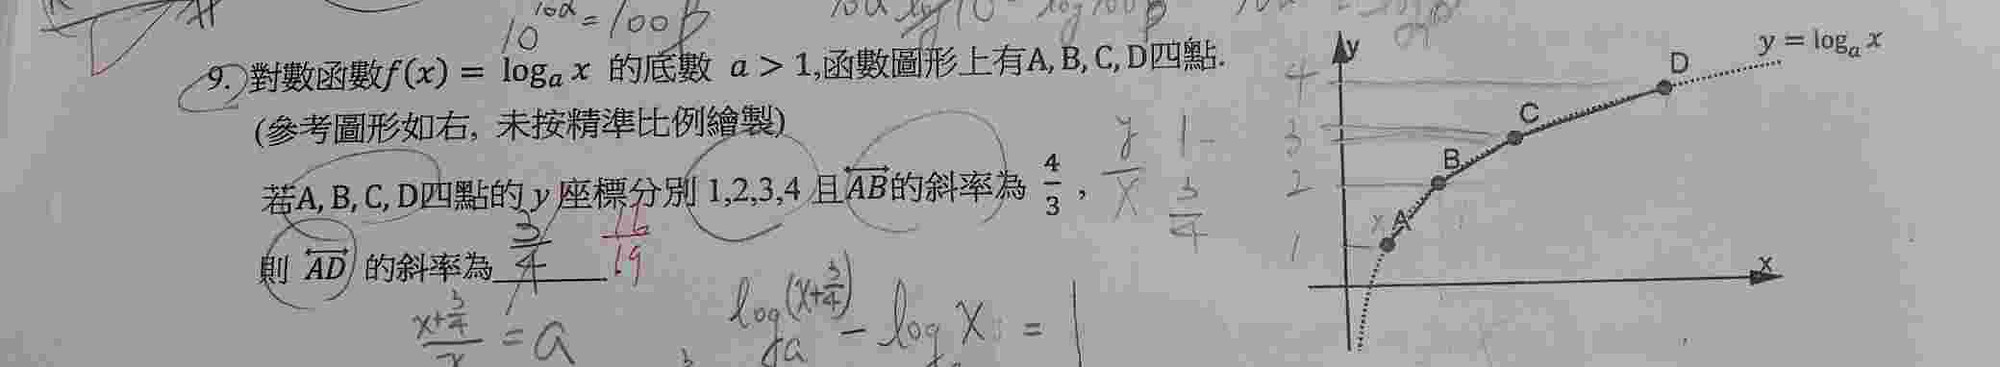 10^{10α} = 100β
9. 對數函數f(x) = log_a x 的底數 a > 1,函數圖形上有A, B, C, D四點.
(參考圖形如右, 未按精準比例繪製)
若A, B, C, D四點的 y 座標分別 1,2,3,4 且AB的斜率為 4/3 ,
則 AD 的斜率為 3/4 16/19
(x+3/4)/x = a
log_a(x+3/4) - log_a x = 1
y/x
1
3/4
y
y = log_a x
4
D
3
C
2
B
x A
1
x